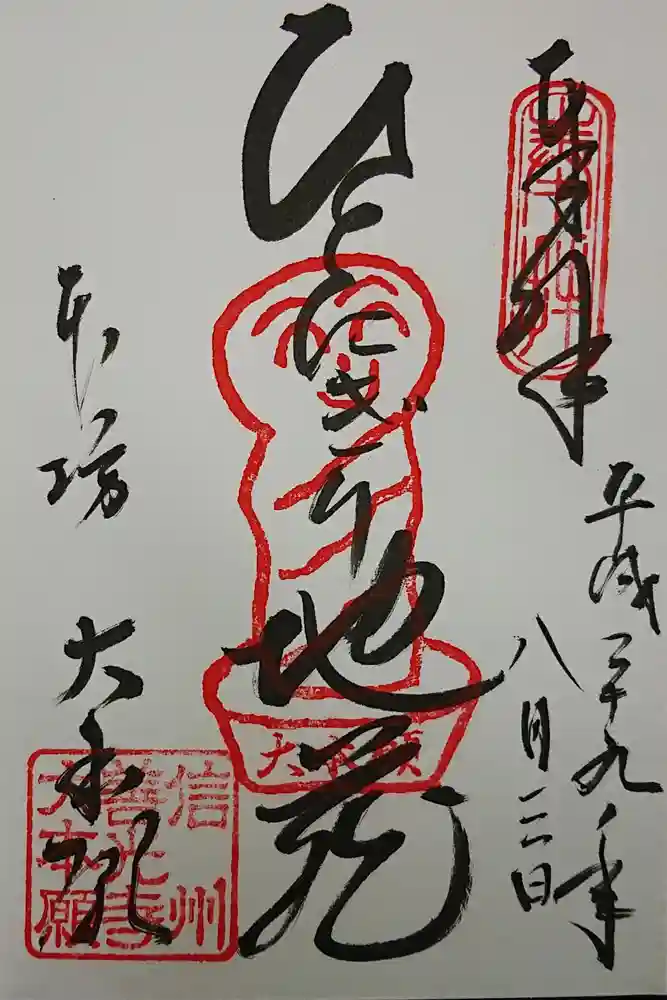 奉拝
平成二十九年
八月二日
ひとにぎり地蔵
大本願
本坊
大本願
信州
善光寺
大本願